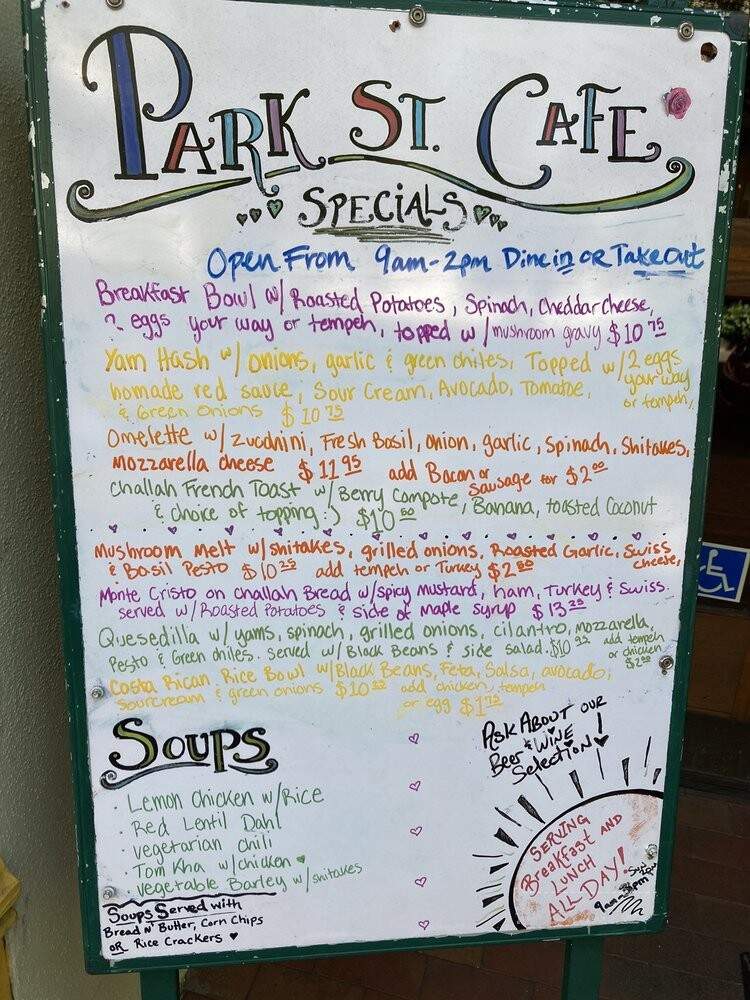 PARK ST. CAFE
SPECIALS
Open From 9am-2pm Dine in OR Takeout
Breakfast Bowl w/ Roasted Potatoes, Spinach, Cheddar Cheese,
2 eggs your way or tempeh, topped w/ mushroom gravy $10 75
Yam Hash w/ onions, garlic & green chiles, Topped w/ 2 eggs
your way
or tempeh,
homade red sauce, Sour Cream, Avocado, Tomatoe,
& Green Onions $10 75
Omelette w/ zucchini, Fresh Basil, onion, garlic, Spinach, Shitakes,
mozzarella cheese $11 95 add Bacon or
Sausage for $2 00
Challah French Toast w/ Berry Compote, Banana, toasted Coconut
& choice of topping :) $10 50
Mushroom Melt w/ shitakes, grilled onions, Roasted Garlic, Swiss
cheese,
& Basil Pesto $10 25 add tempeh or Turkey $2 50
Monte Cristo on challah Bread w/ spicy mustard, ham, Turkey & Swiss.
served w/ Roasted Potatoes & side of maple syrup $13 25
Quesedilla w/ yams, spinach, grilled onions, cilantro, mozzarella,
Pesto & Green chiles. served w/ Black Beans & side salad. $10 add tempeh
or chicken
Costa Rican Rice Bowl w/ Black Beans, Feta, Salsa, avocado,
sourcream & green onions $10 add chicken, tempeh
or egg $1 75
SOUPS
· Lemon Chicken w/ Rice
· Red Lentil Dahl
· vegetarian chili
· Tom Kha w/ chicken
· vegetable Barley w/ shitakes
Soups Served with
Bread N' Butter, Corn Chips
OR Rice Crackers
ASK ABOUT OUR
Beer & WINE
Selection!
SERVING
Breakfast AND
LUNCH
ALL DAY!
9am